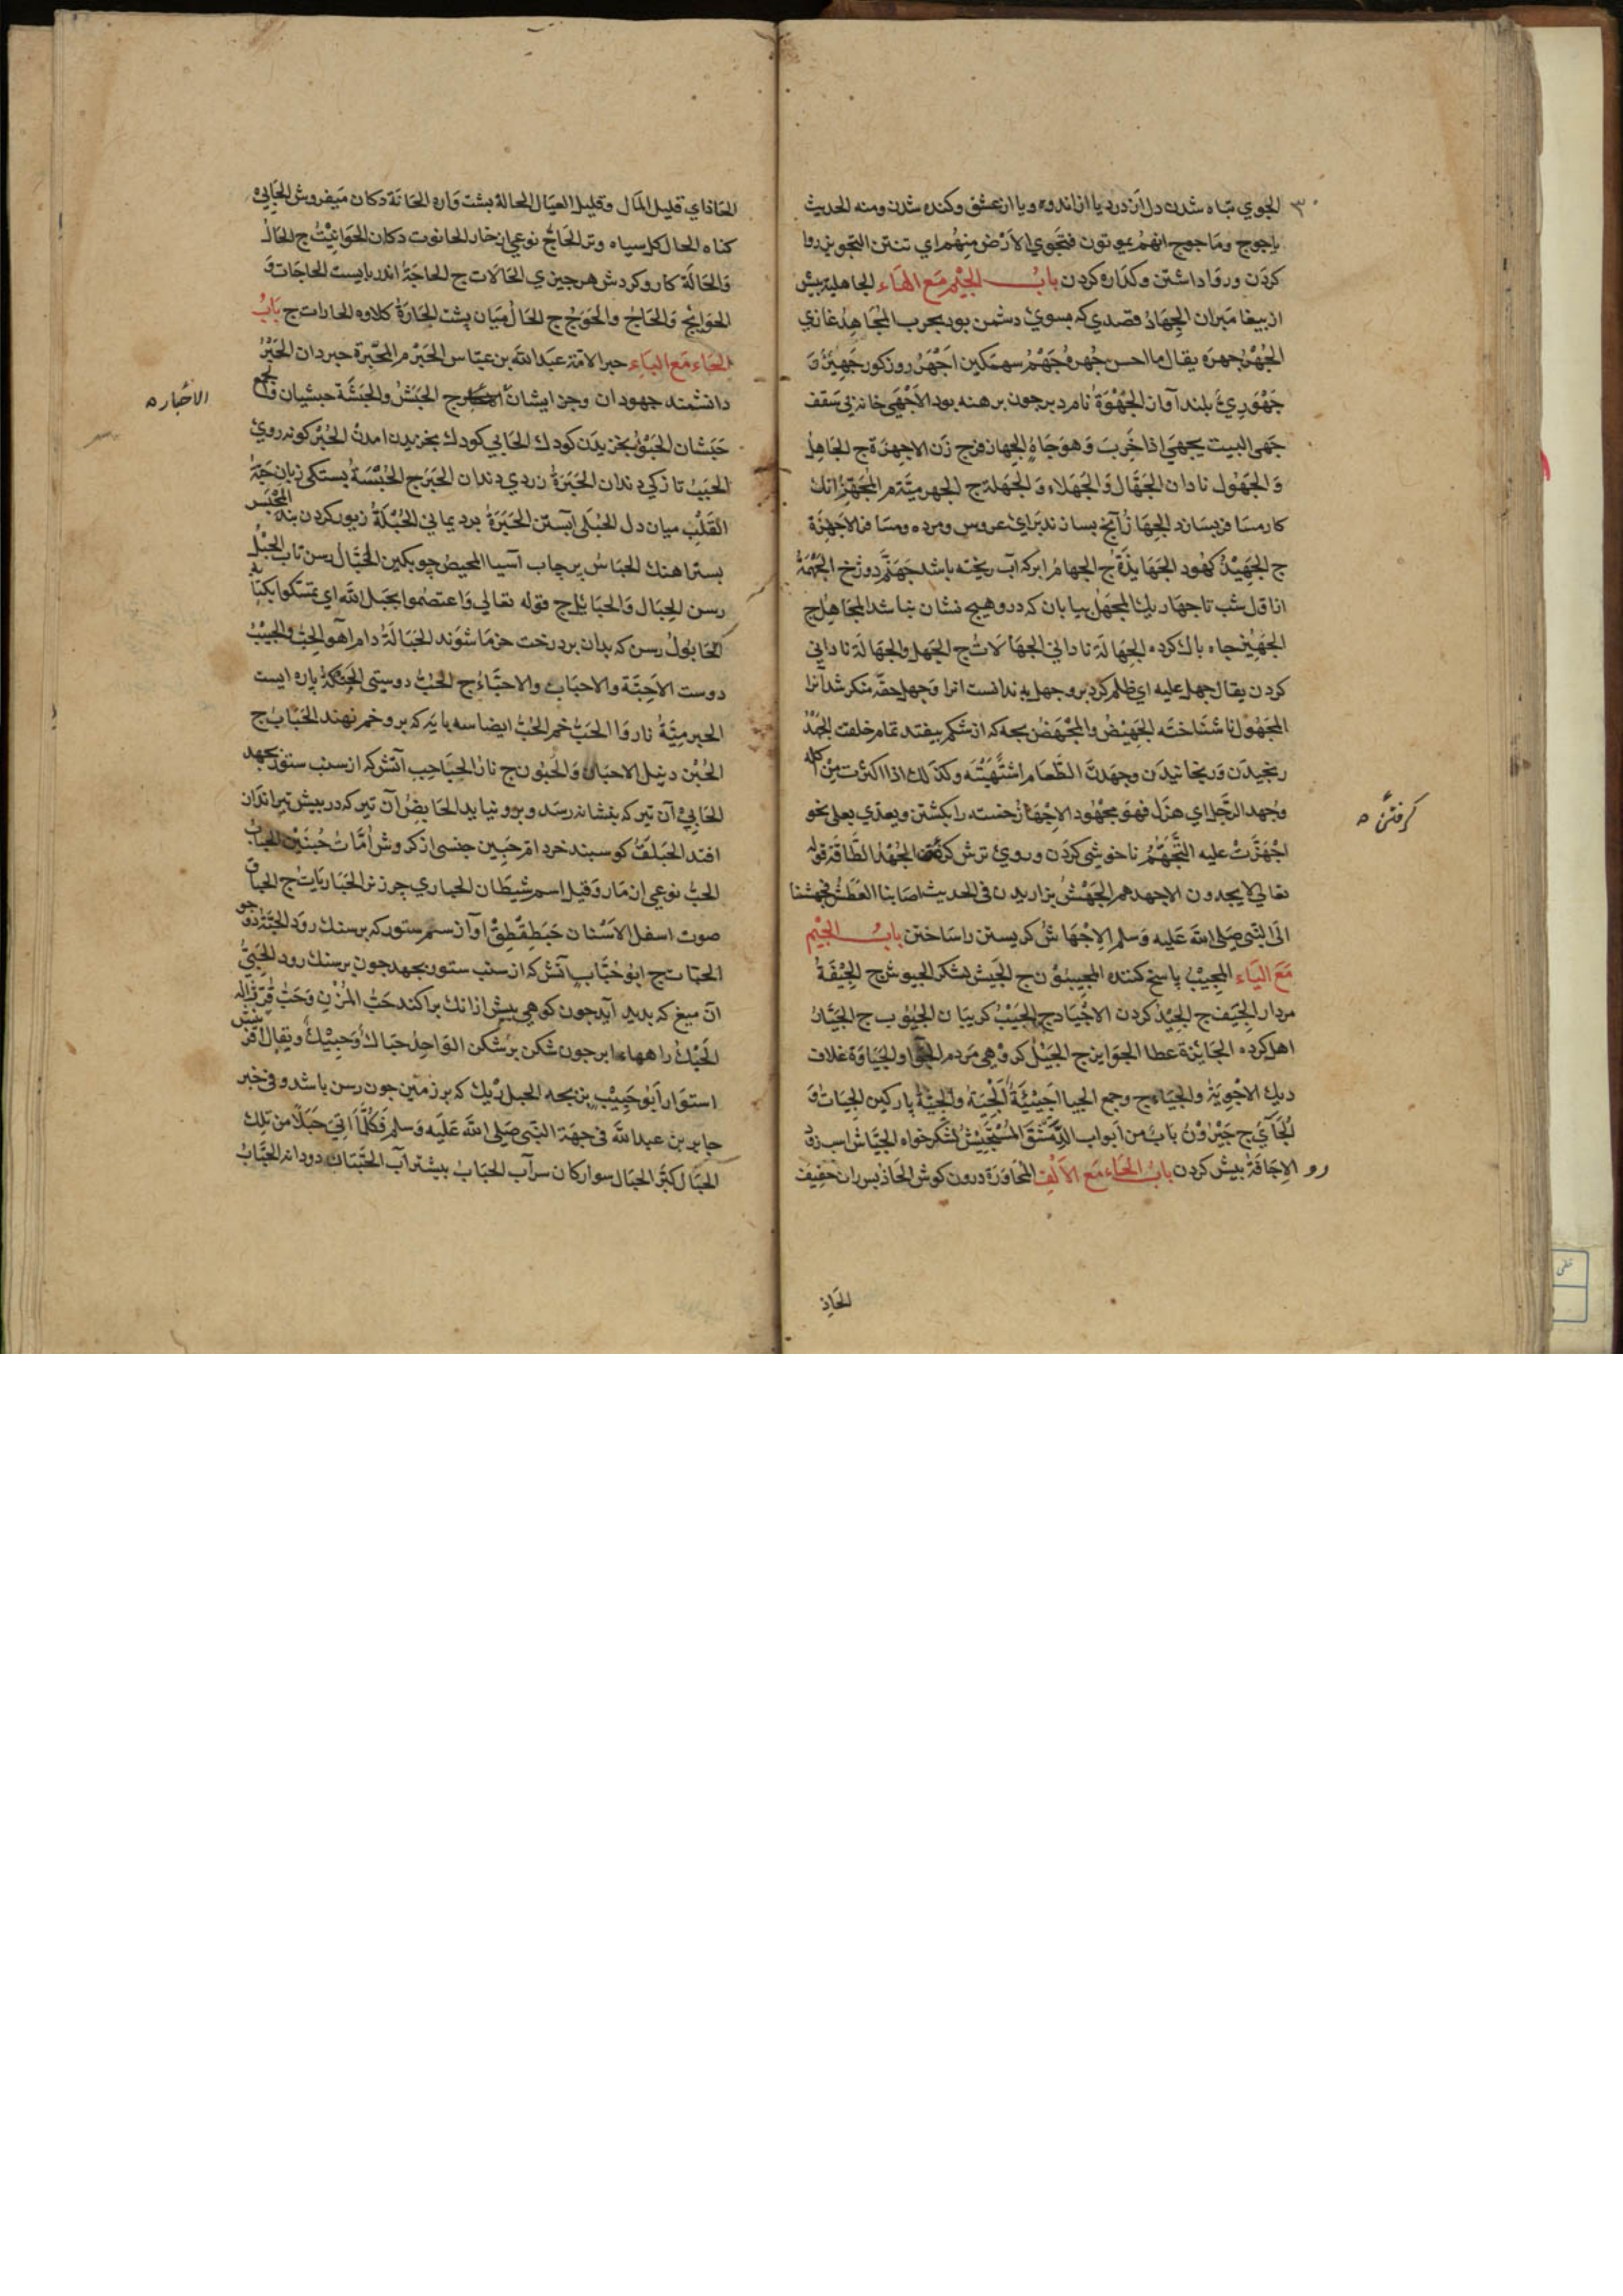 الجوي تباه شدن دل از درد یا از اندوه و یا از عشق وکنده شدن ومنه الحدیث
یاجوج وماجوج انهم یموتون فتجوي الارض منهم اي تنتن التجویز روا
کردن وروا داشتن وکذاره کردن باب الجیم مع الهاء الجاهلیة پیش
از بیغامبران الجهاد قصدي که بسوي دشمن بود بحرب المجاهد غازي
الجهر جهره یقال ما احسن جهره جهم سهمکین اجهر روزکور جهیر و
جهوري بلند آواز الجهوة نامرد بر جون برهنه بود الاجهی خانه بی سقف
جهی البیت یجهي اذا خرب وهو جاه الجهاز فرج زن الاجهزة ج الجاهل
والجهول نادان الجهال والجهلاء والجهلة ج الجهرمیة م المجهز انك
کار مسافر بسازد الجهاز آنچ بسازند برای عروس ومرده ومسافر الاجهزة
ج الجهبذ کهبود الجهابذة ج الجهام ابر که آب ریخته باشد جهنم دوزخ الجهمة
از اول شب تا جهار یك المجهل بیابان که درو هیچ نشان نباشد المجاهل ج
الجهیر جاه باك کرده الجهالة ناداني الجهالات ج الجهل والجهالة ناداني
کردن یقال جهل علیه اي ظلم کرد برو وجهل به ندانست انرا وجهل حقه منکر شد آنرا
المجهول ناشناخته الجهیض والمجهض بجه که از شکم بیفتد تمام خلقت الجهد
رنجیدن ورنجانیدن وجهدت الطعام اشتهیته وکذلك اذا اکثرت من اکله
وجهد الرجل اي هزل فهو مجهود الاجهاز خسته را بکشتن ویعدي بعلی نحو
اجهزت علیه التجهم ناخوشی کردن وروي ترش کردن الجهد الطاقة قوله
تعالی لا یجدون الا جهدهم الجهش بزاریدن في الحدیث اصابنا العطش فجهشنا
الی النبي صلی الله علیه وسلم الاجهاش کریستن را ساختن باب الجیم
مع الیاء المجیب پاسخ کننده المجیبون ج الجیش لشکر الجیوش ج الجیفة
مردار الجیف ج الجید کردن الاجیاد ج الجیب کریبان الجیوب ج الجیار
اهل کرده الجایزة عطا الجوایز ج الجیل کروهی مردم والجیاوة غلاف
دیك الاجویة والجیاء ج وجمع الجیا اجیئة الجیة والجیئة پارکین الجیات و
الجآي ج جیرون باب من ابواب الدمشق المستجیش لشکر خواه الجیاش اسب رو
الاجافة بیش کردن باب الحاء مع الالف المحاورة درون کوش الحاذ بس ران خفیف
الحاذ
کرفتن ه
الحاذ اي قلیل المال وقلیل العیال الحالة بشت واره الحانة دکان میفروش الحابیه
کناه الحال کل سیاه وتر الحاج نوعي از خار الحانوت دکان الحوانیت ج الحال
والحالة کار وکردش هر جیزي الحالات ج الحاجة اندربایست الحاجات و
الحوایج والحاج والحوج ج الحال میان پشت الحارة کلاوه الحارات ج باب
الحاء مع الباء حبر الامة عبد الله بن عباس الحبر م المحبرة حبردان الحبر
دانشمند جهودان وجز ایشان ج الحبش والحبشة حبشیان
حبشان الحبو بخزیدن کودك الحابي کودك بخزیدن امده الحبر کونه روي
الحبب تازکي دندان الحبرة زردي دندان الحبر ج الحبسة بستکی زبان حبة
القلب میان دل الحبلی آبستن الحبرة برد یماني الحبلة زیور کردن بند المحبس
بستراهنك الحباس پرجاب آسیا المحبض جوبکین الحبال رسن تاب الحبل
رسن الحبال والحبائل ج قوله تعالي واعتصموا بحبل الله اي تمسکوا بکتابه
الحابول رسن که بدان بر درخت خرما شوند الحبالة دام آهو الحب والحبیب
دوست الاحبة والاحباب والاحباء ج الحب دوستی پاره ایست
الحبرمیة ناروا الحب خم الحب ایضا سه پایه که برو خم نهند الحباب ج
الحبن دنبل الاحبان والحبون ج نار الحباحب آتش که از سنب ستور بجهد
الحابي آن تیر که بنشانه رسد وبرو نیاید الحابض آن تیر که در بیش تیرانداز
افتد الحبلق کوسبند خرد ام حبین جنسی از کروش امات حبین الحباب
الحب نوعي از مار وقیل اسم شیطان الحباري چرز نر الحباریات ج الحباق
صوت اسفل الانسان حبطقطق آواز سم ستور که بر سنك رود الحبة دو جو
الحبات ج ابو حباب آتش که از سنب ستور بجهد جون بر سنك رود الحبي
آن میغ که بدید آید جون کوهي بیش از انك براکند حب المزن وحب قر ژاله
الحبك راههاء ابر جون شکن بر شکن الواحد حباك وحبیك ویقال
استوار ابو حبیب بزبجه الحبل ریك که بر زمین جون رسن باشد وفي خبر
جابر بن عبد الله في جهة النبي صلی الله علیه وسلم فکلما اتی حبلا من تلك
الحبال کبر الحبال سوارکان سرآب الحباب بیشتر آب الحبتان دودانه الحباب
الاخباره